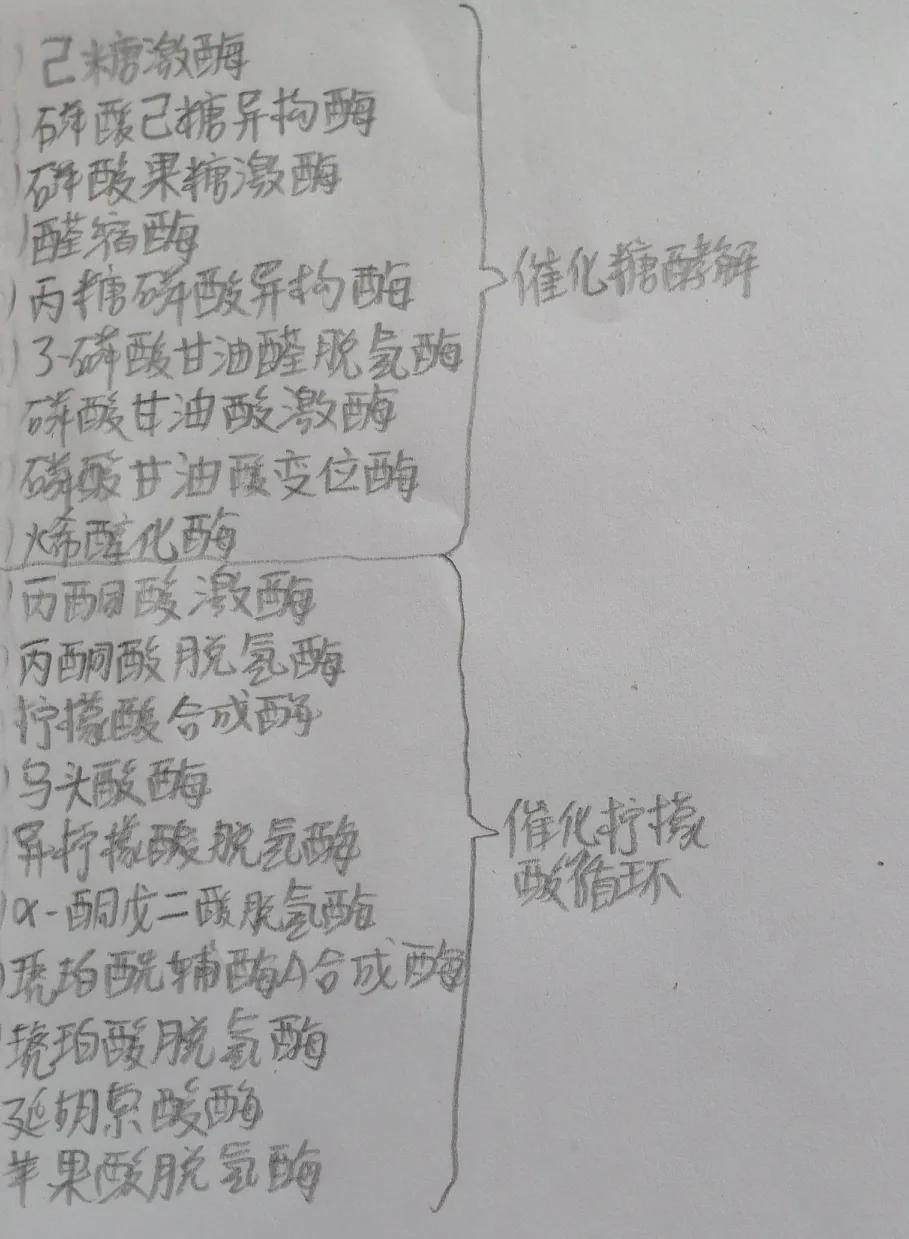 己糖激酶
磷酸己糖异构酶
磷酸果糖激酶
醛缩酶
丙糖磷酸异构酶
3-磷酸甘油醛脱氢酶
磷酸甘油酸激酶
磷酸甘油酸变位酶
烯醇化酶
催化糖酵解
丙酮酸激酶
丙酮酸脱氢酶
柠檬酸合成酶
乌头酸酶
异柠檬酸脱氢酶
α-酮戊二酸脱氢酶
琥珀酰辅酶A合成酶
琥珀酸脱氢酶
延胡索酸酶
苹果酸脱氢酶
催化柠檬
酸循环